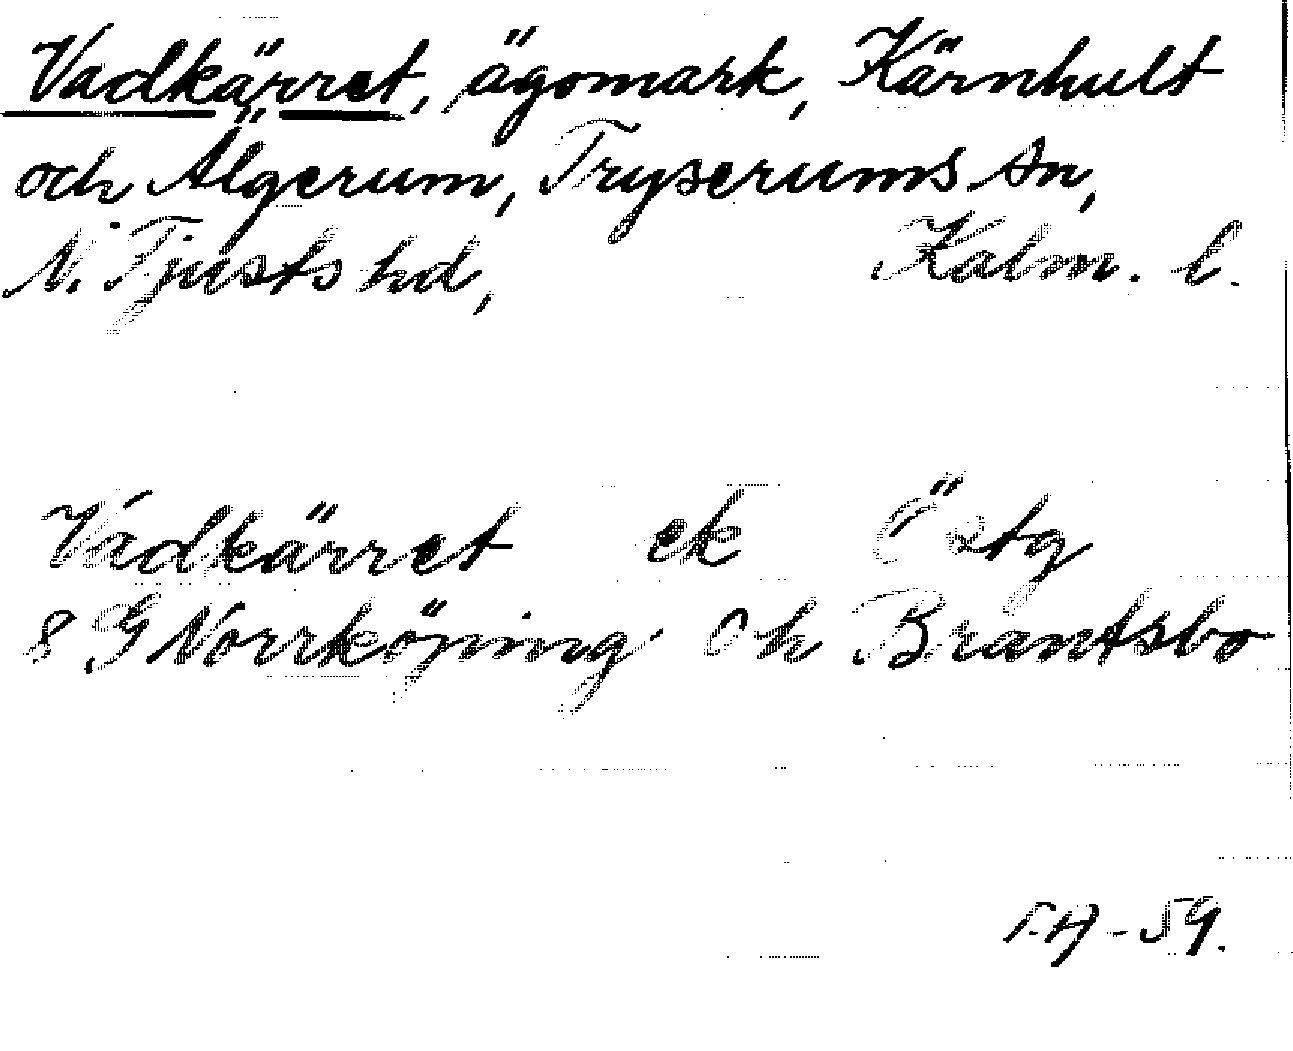 Vadkärret, ägomark, Kärnhult
och Älgerum, Tryserums sn,
N. Tjusts hd, Kalm. l.
Vadkärret ek Östg
8 G Norrköping Öh Brantsbo
-59.